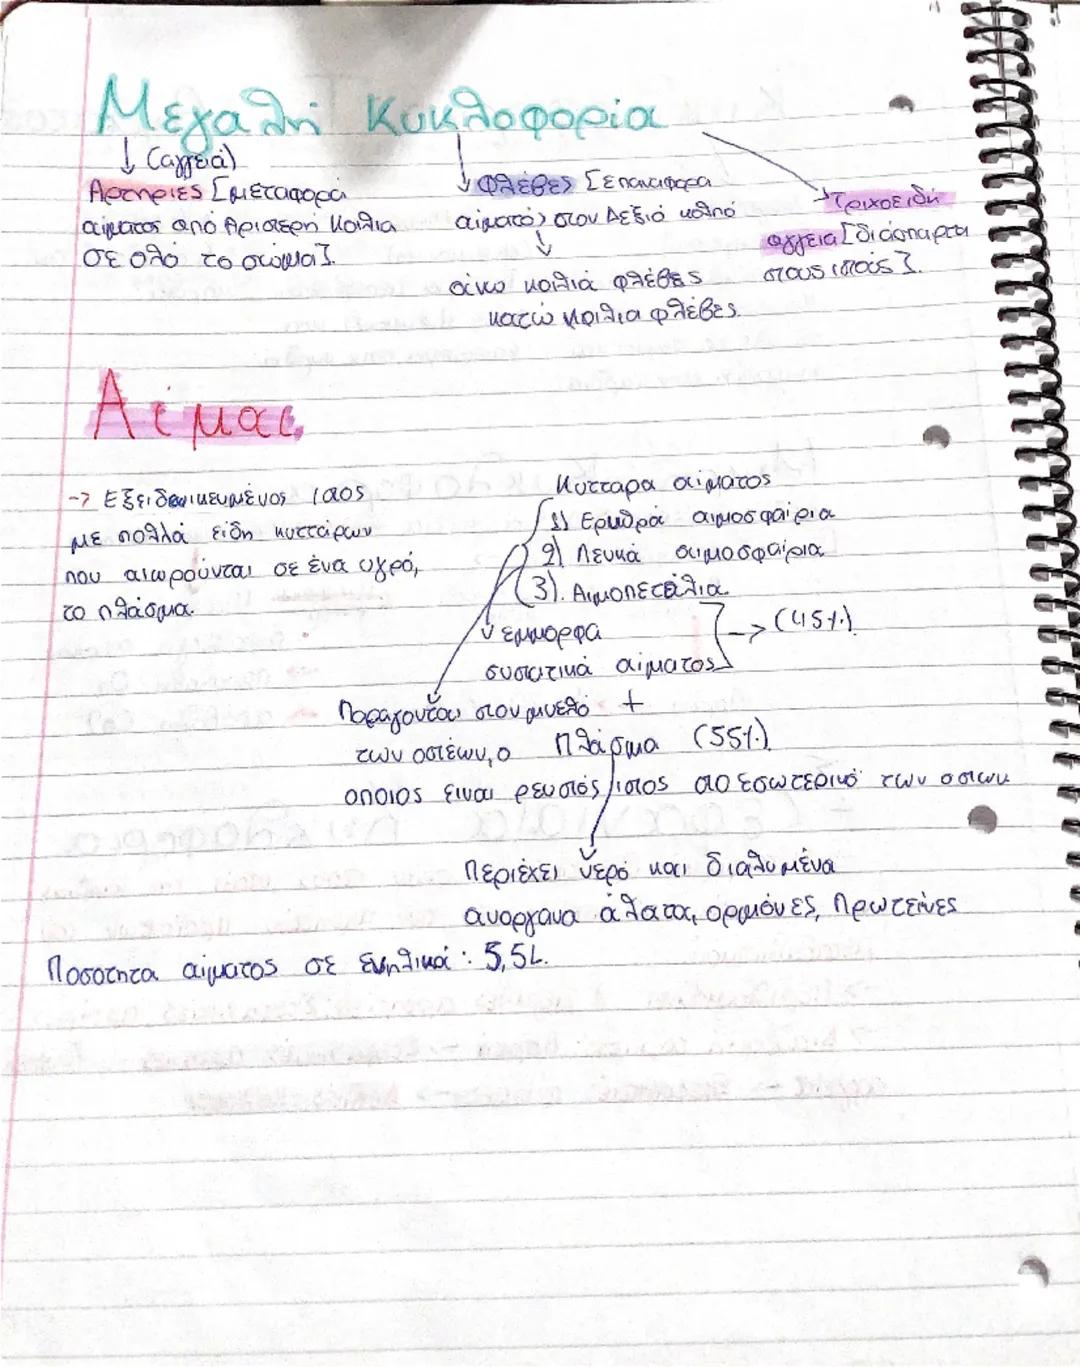 Μεγαλή Κυκλοφορία
(αγγεία)
Αρτηριες [μεταφορά
αίματος από Αριστερή Κοιλια
σε όλο το σώμα].
Φλέβες [επαναφορα
αίματος στον Δεξιό κολπό
άνω κοιλιά φλέβες
κατώ κοιλια φλέβες.
Τριχοειδή
αγγεια [διάσπαρτα
στους ιστούς].
Αίμα
-> Εξειδεικευμένος ιστος
με πολλά είδη κυττάρων
που αιωρούνται σε ένα υγρό,
το πλάσμα.
Κυτταρα αίματος
1) Ερυθρά αιμοσφαίρια
2) Λευκά αιμοσφαίρια
3). Αιμοπετάλια.
εμμορφα
συστατικά αίματος -> (45%)
Παραγονται στον μυελό +
των οστέων, ο Πλάσμα (55%)
οποιος ειναι ρευστός ιστος στο εσωτερικό των οστων
Περιέχει νερό και διαλυμένα
ανοργανα άλατα, ορμόνες, πρωτεΐνες
Ποσοτητα αίματος σε ενηλικά : 5,5L.